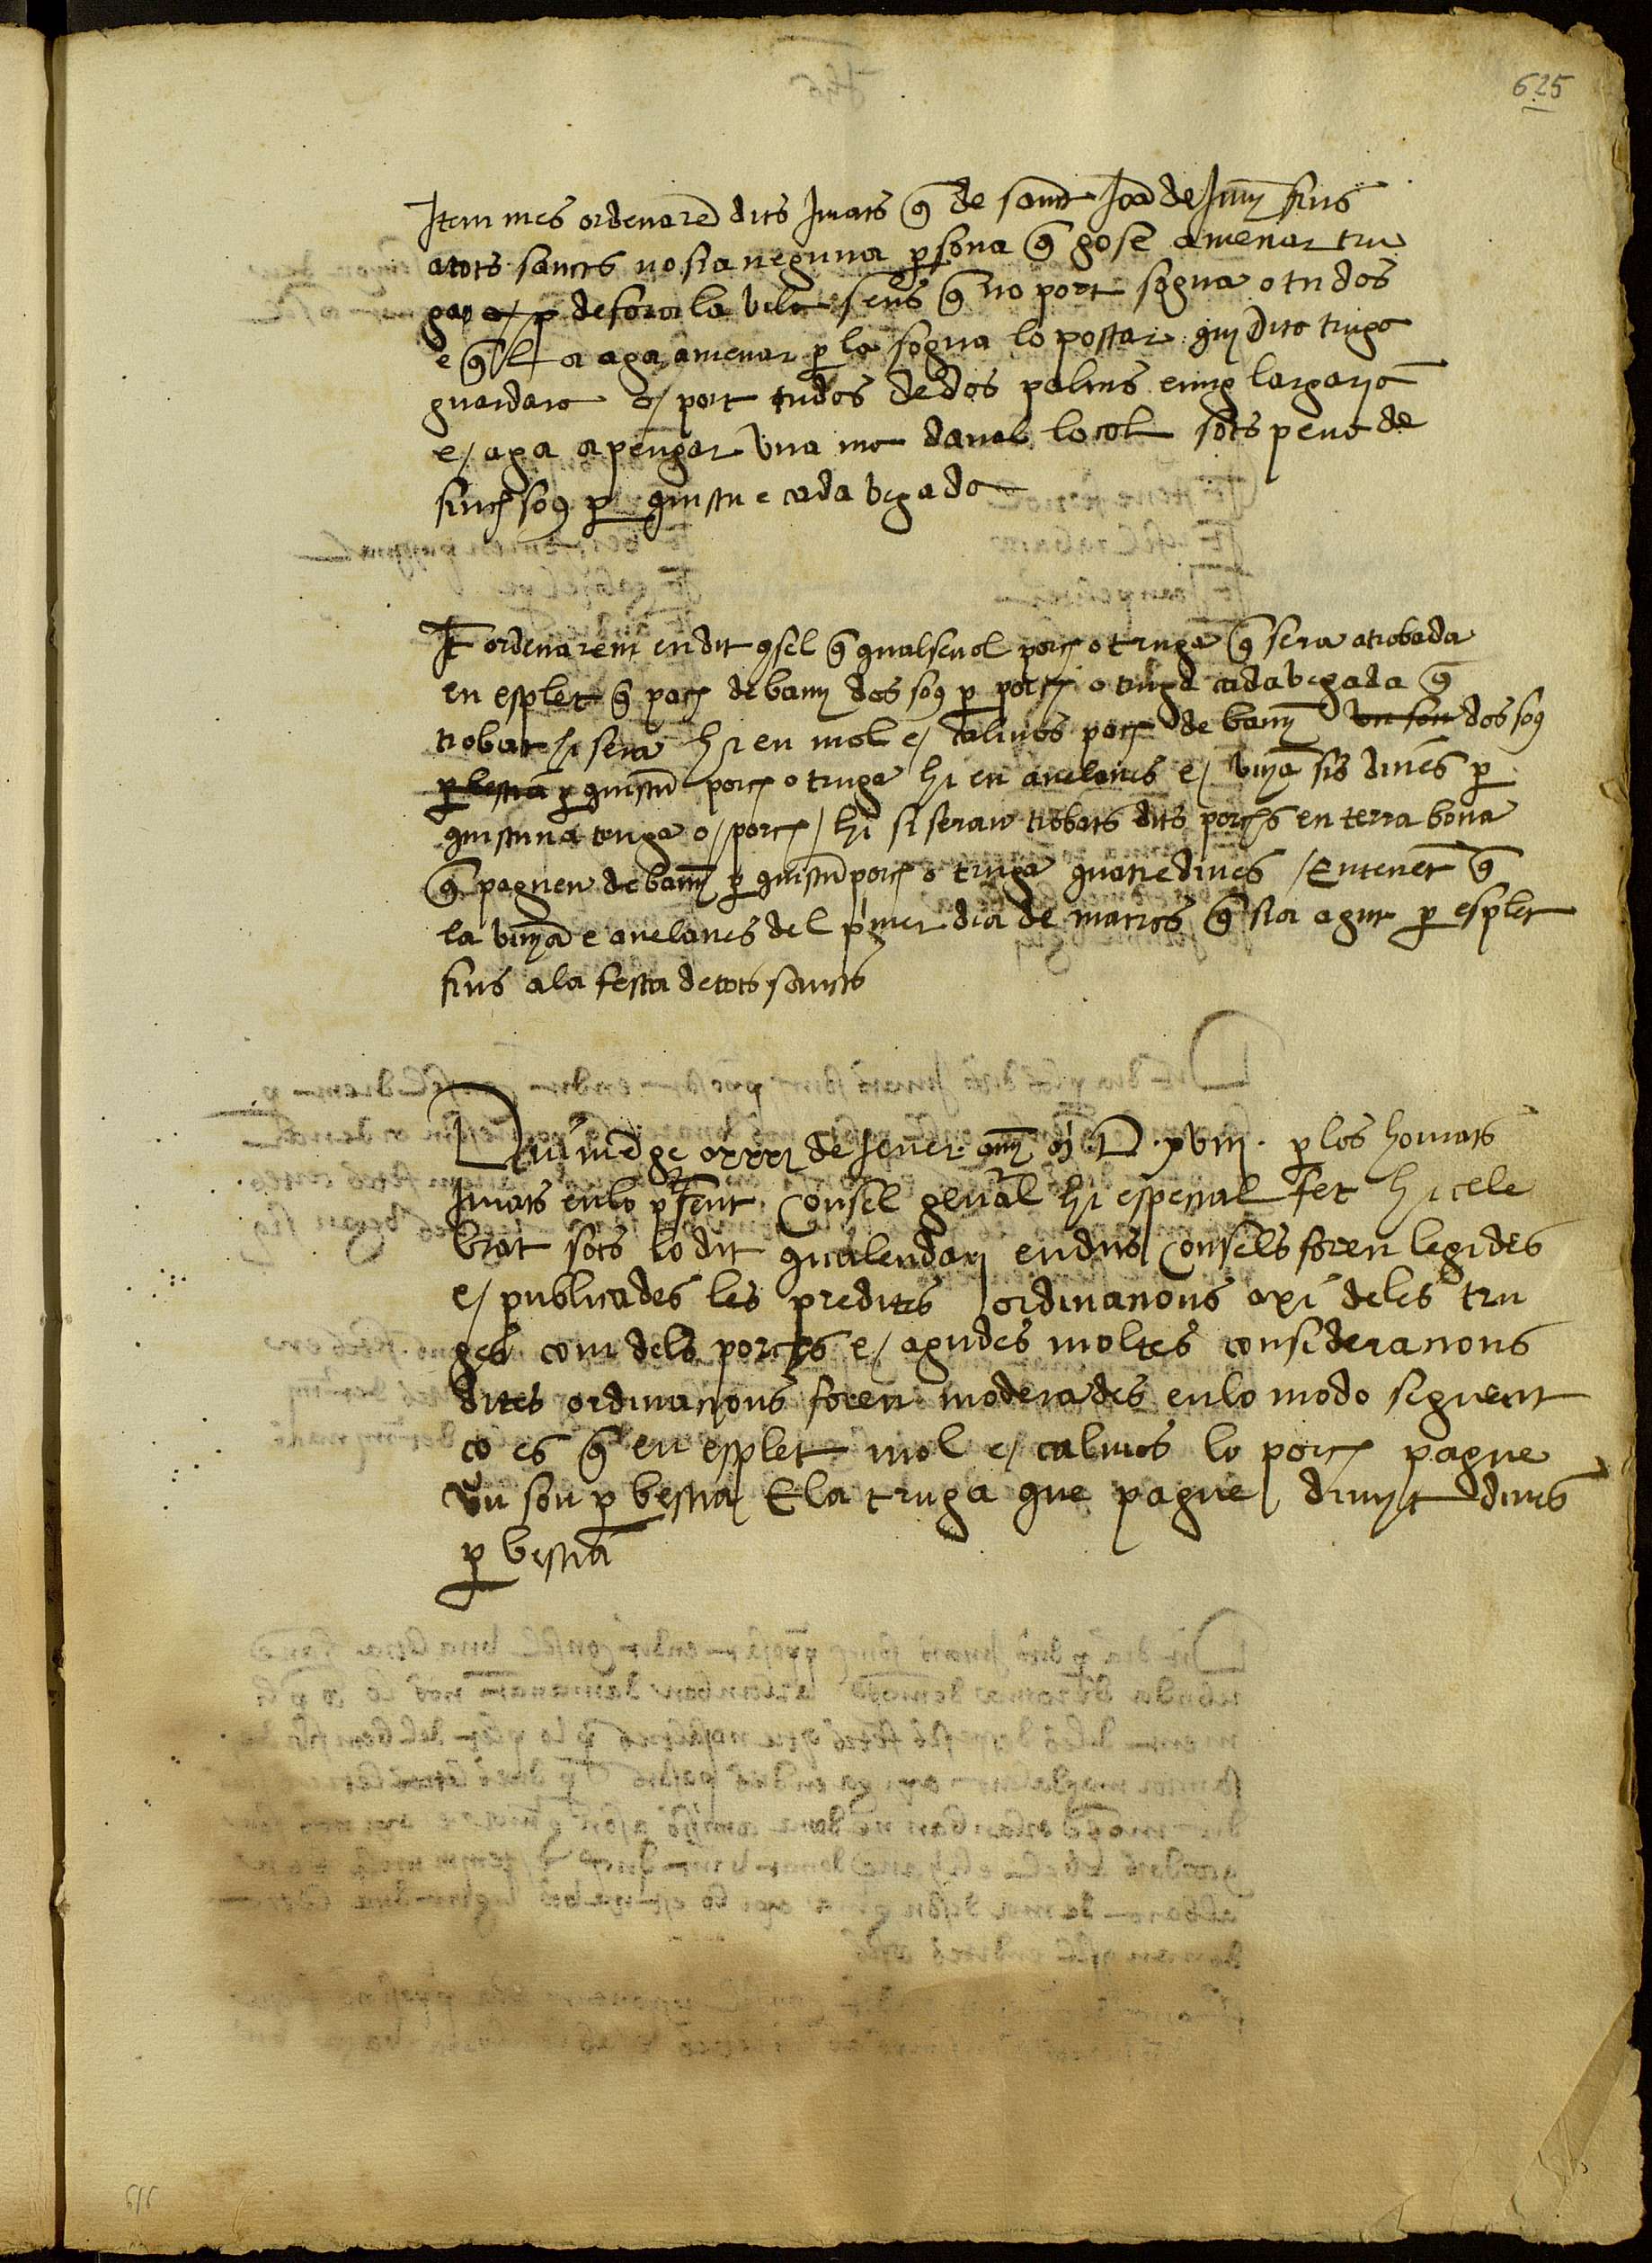 625
Item mes ordenarē dits Jurats q̄ de sanct Joā de Juny fins
a tots sancts no sia neguna p̱sona q̄ gose amenar tru
ga o / p̱ defora la vila sens q̄ no port sogua o tudos
e q̄ l a aga amenar p̱ la sogua lo postar qui dita truga
guardara o / port tudos de dos palms e mig largaria
e / aga a pengar una ma daual lo col sots pena de
sinch sos p̱ quistu e cada vegada
It ordenarem en dit ꝯsel q̄ qualseuol porch o truga q̄ sera atrobada
en esplet q̄ pach de bany dos sos p̱ porch o truga cada vegada q̄
trobat hi sera hi en mol e / calmos pach de bany un sou dos sos
p̱ bestia p̱ quistū porch o truga hi en auelanes e / vinya sis dines p̱
quistuna truga o / porch / hi si seran trobats dits porchs en terra bona
q̄ paguen de bany p̱ quistū porch o truga quatre dines / Entenēt q̄
la vinya e auelanes del p'mer dia de marts q̄ sia agut p̱ esplet
fins a la festa de tots sancts
Diumēge a xxxi de Jener any M D xviii · p̱ los honrats
Jurats en lo p̱sent Consel general hi espesial fet hi cele
brat sots lo dit qualendari en dits Consels foren legides
e / publicades les predites ordinacions axi deles tru
ges com dels porchs e / agudes moltes consideracions
dites ordinacions foren moderades en lo modo seguent
ço es q̄ en esplet mol e / calmos lo porch pague
un sou p̱ bestia E la truga que pague divuyt dines
p̱ bestia